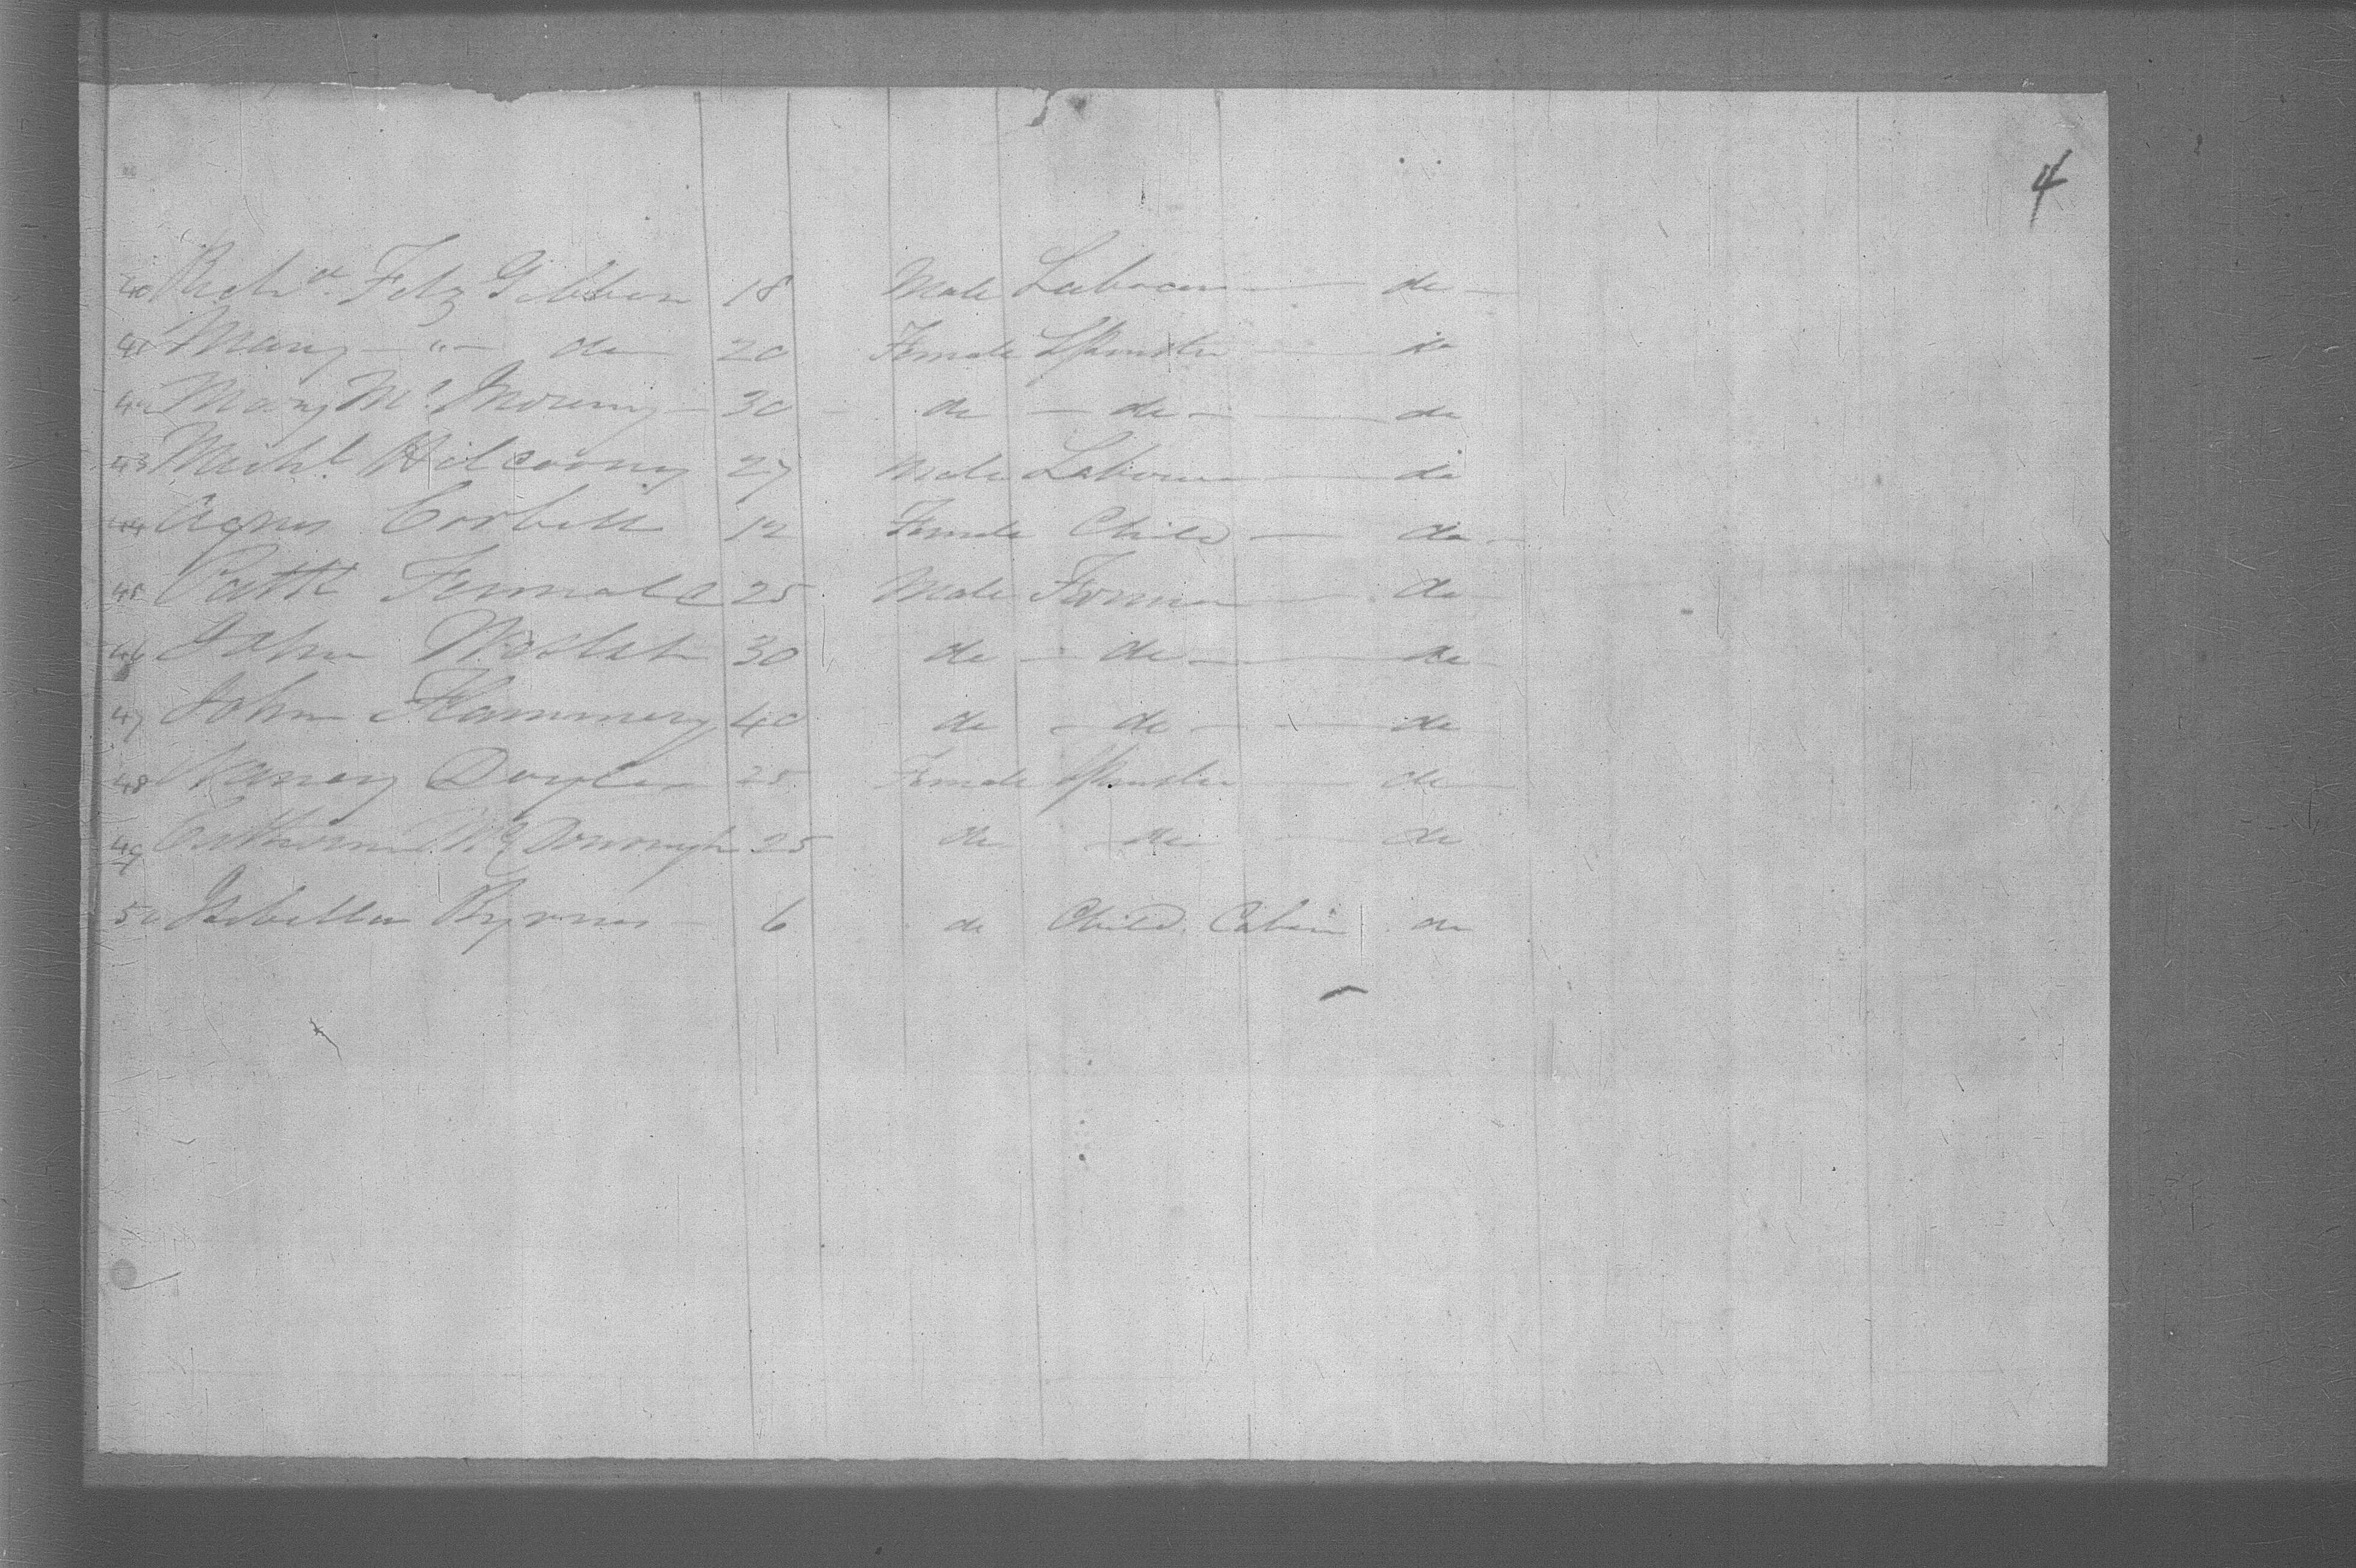 4
40 Richd. Fitz Gibbon 18 Male Labourer — do —
41 Mary — " — do 20 Female Spinster — do
42 Mary Mc — 30 do — do — do
43 Michl. 27 Male Labourer — do
44 Agnes Corbett 12 Female Child — do —
45 Patk 25 Male Farmer — do
46 John 30 do — do — do
47 John Flannery 40 do — do — do
48 Nancy Doyle 25 Female Spinster — do
49 Catherine McDonough 25 do do — do
50 Isabella Byrnes — 6 do Child. Cabin do